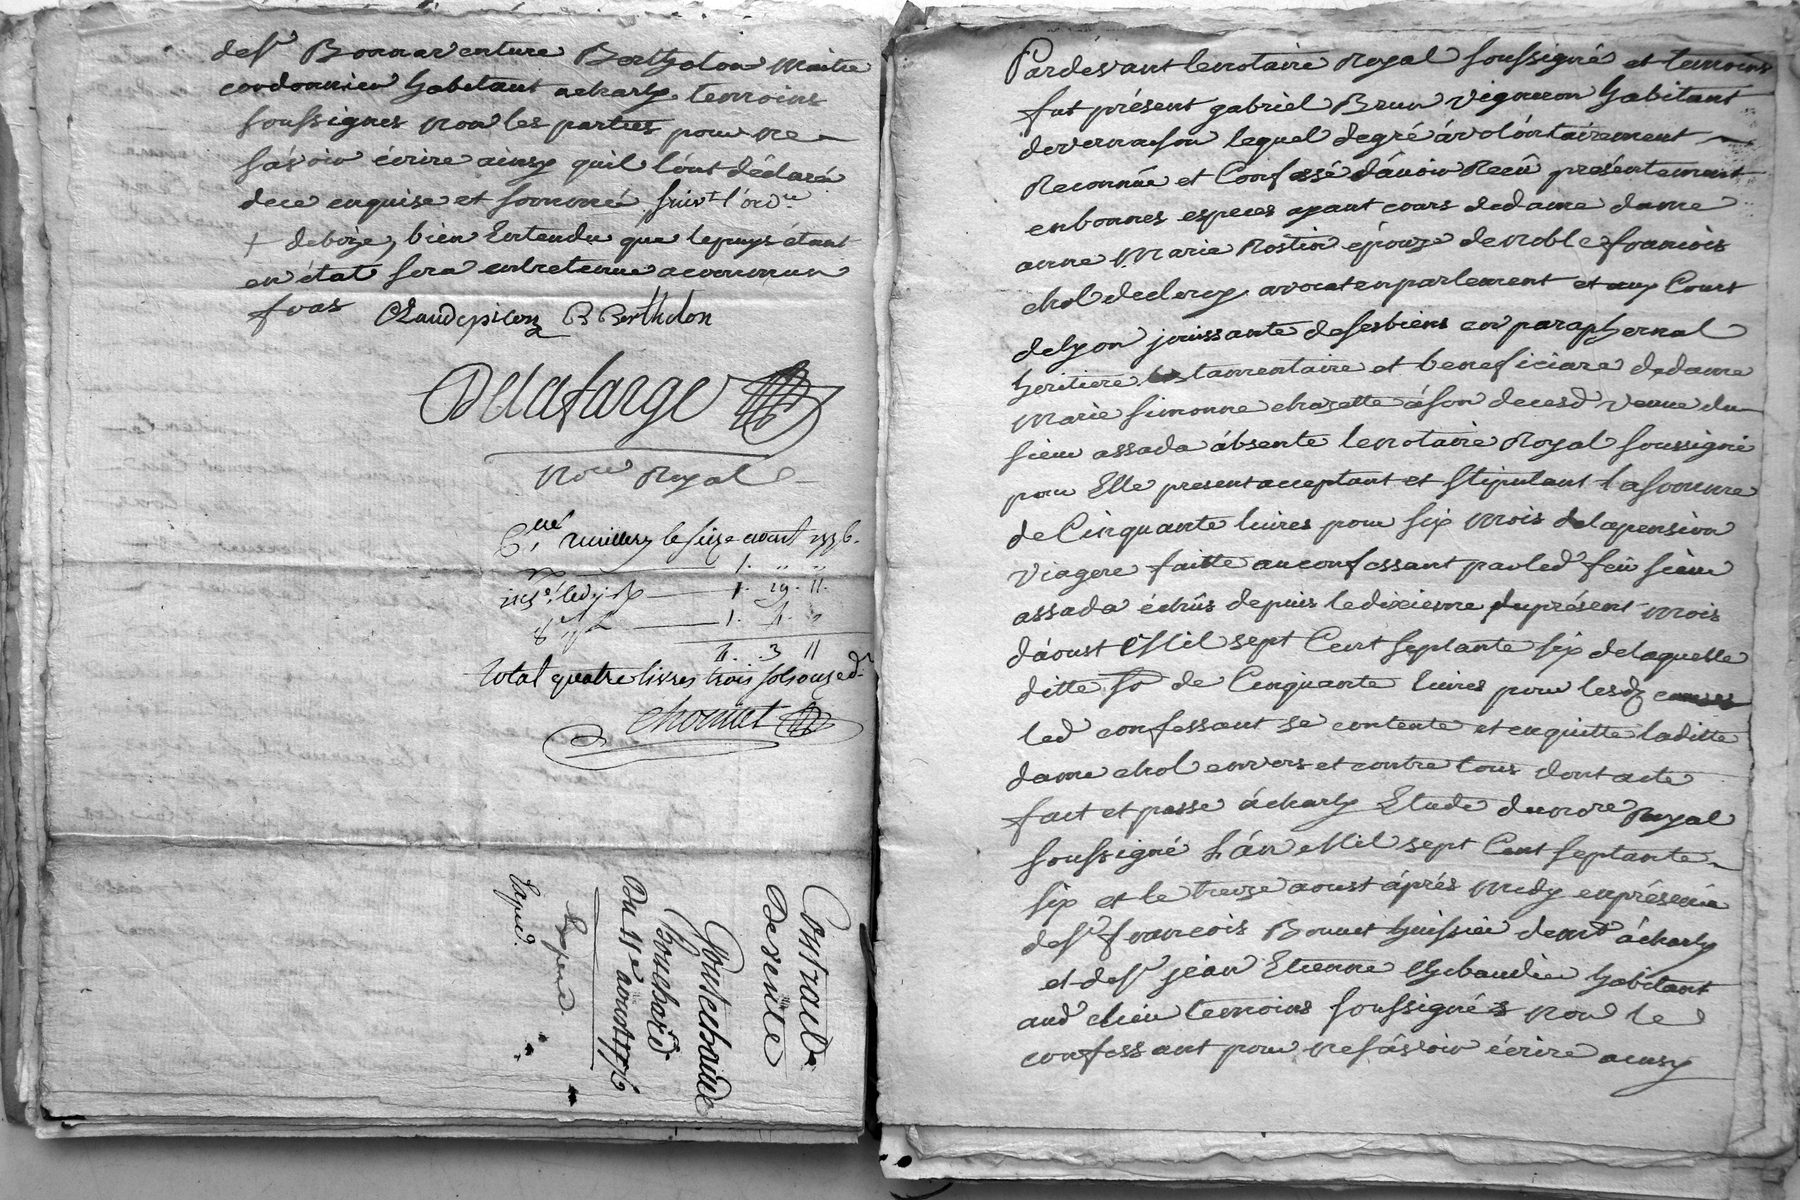 de Sr Bonnaventure Berthelon Maitre
cordonnier habitant acharly temoins
soussignes non les parties pour ne
sávoir écrire ainsy quil l'ont déclaré
dece enquise et sommé suivt l'ordce
+ deboize, bien Entendu que lepuys étant
en état sera entretenue acommun
frais Claudepicon B Berthelon
Delafarge
Nore Royal
Clé Amillery le seize aout 1776.
1. " "
1. 19. 11.
1. 4. "
4. 3 11
total quatre livres trois sols onze d.
chomet
Contract
De vente
Goutechaude
Bouchard
Du 11e aoust 1776
Expedié
Pardevant lenotaire Royal soussigné et temoins
fut présent gabriel Brun vigneron habitant
devernaison lequel degré ávolóntairement
Reconnue et Confessé dávoir Recû présentement
enbonnes especes ayant cours dedame dame
anne Marie Rostin épouze denoble francois
chol declercy avocatenparlement et aux Cours
delyon jouissante desesbiens en paraphernal
heritiere testamentaire et beneficiare dedame
Marie simonne chazette ásón decesd veuve du
sieur assada ábsente lenotaire Royal soussigné
pour Elle present acceptant et stipulant lasomme
de Cinquante livres pour six mois delapension
viagere faitte auconfessant parled feû sieur
assada échûs depuis ledixieme duprésent mois
dáoust Mil sept Cent septante six delaquelle
ditte so de Cinquante livres pour lesd causes
led confessant se contente et enquitte laditte
dame chol envers et contre tous dont acte
fait et passé ácharly Etude dunore Royal
soussigné L'án Mil sept Cent septante
six et le treize aoust áprés midy enprésence
de Sr francois Bonnet huissier demt ácharly
et de Sr jean Etienne Thibaudier habitant
aud lieu temoins soussignés non le
confessant pour nesávoir écrire ainsy